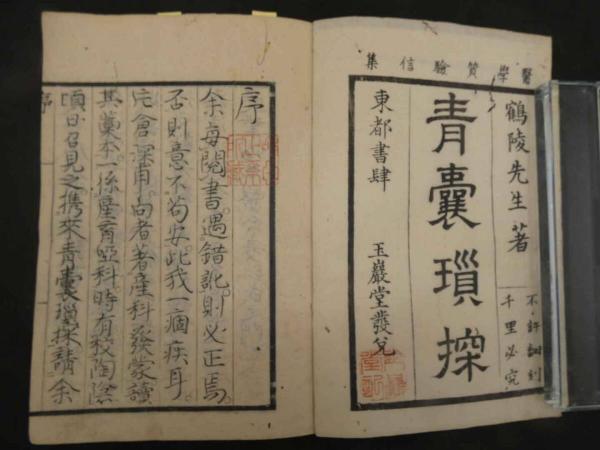 醫學質驗信集
鶴陵先生著
不許翻刻
千里必究
青囊瑣探
東都書肆 玉巖堂發兌
序
余每閱書遇錯訛則必正焉
否則意不苟安此我一痼疾耳
片倉深甫向者著產科發蒙讀
其藁本係產育啞科時有校陶陰
頃日召見之攜來青囊瑣探請余
序